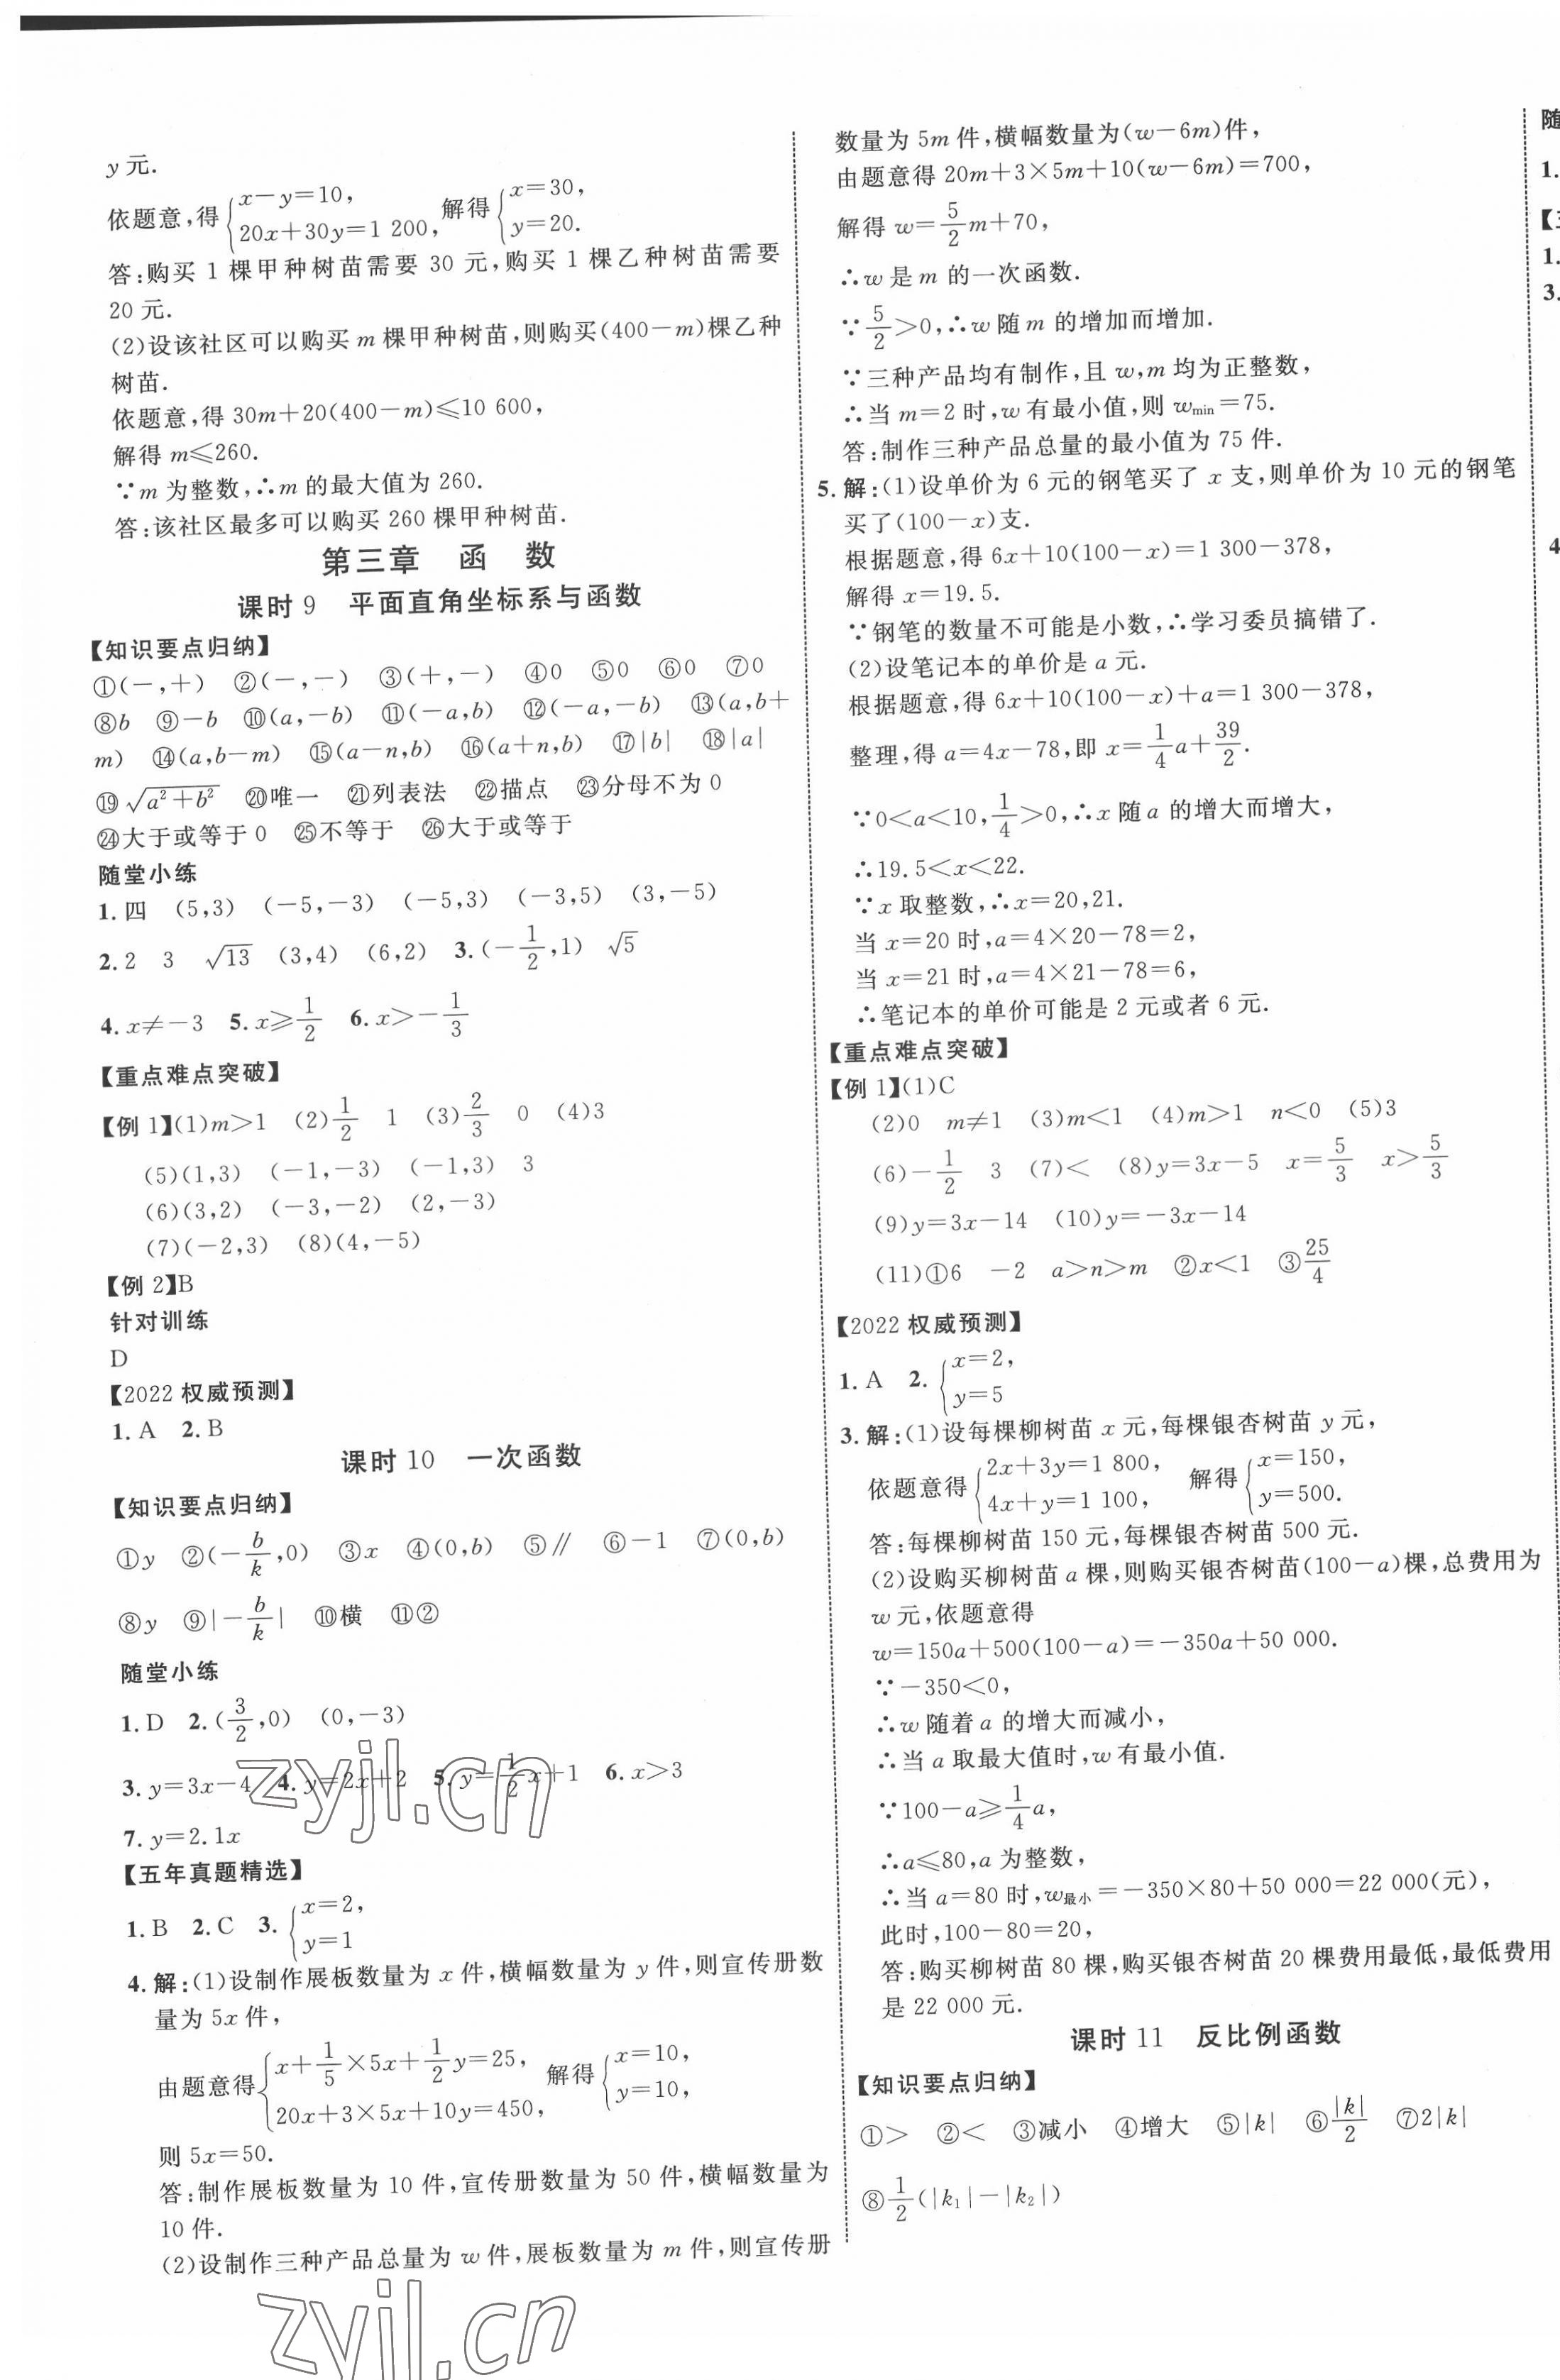 y元.
依题意,得{x−y=10, 20x+30y=1 200, 解得{x=30, y=20.
答:购买 1 棵甲种树苗需要 30 元,购买 1 棵乙种树苗需要
20 元.
(2)设该社区可以购买 m 棵甲种树苗,则购买(400−m)棵乙种
树苗.
依题意,得 30m+20(400−m)⩽10 600,
解得 m⩽260.
∵m 为整数,∴m 的最大值为 260.
答:该社区最多可以购买 260 棵甲种树苗.
第三章 函 数
课时 9 平面直角坐标系与函数
【知识要点归纳】
①(−,+) ②(−,−) ③(+,−) ④0 ⑤0 ⑥0 ⑦0
⑧b ⑨−b ⑩(a,−b) ⑪(−a,b) ⑫(−a,−b) ⑬(a,b+
m) ⑭(a,b−m) ⑮(a−n,b) ⑯(a+n,b) ⑰|b| ⑱|a|
⑲√(a²+b²) ⑳唯一 ㉑列表法 ㉒描点 ㉓分母不为 0
㉔大于或等于 0 ㉕不等于 ㉖大于或等于
随堂小练
1. 四 (5,3) (−5,−3) (−5,3) (−3,5) (3,−5)
2. 2 3 √13 (3,4) (6,2) 3. (−1/2,1) √5
4. x≠−3 5. x⩾1/2 6. x>−1/3
【重点难点突破】
【例 1】(1)m>1 (2)1/2 1 (3)2/3 0 (4)3
(5)(1,3) (−1,−3) (−1,3) 3
(6)(3,2) (−3,−2) (2,−3)
(7)(−2,3) (8)(4,−5)
【例 2】B
针对训练
D
【2022 权威预测】
1. A 2. B
课时 10 一次函数
【知识要点归纳】
①y ②(−b/k,0) ③x ④(0,b) ⑤∥ ⑥−1 ⑦(0,b)
⑧y ⑨|−b/k| ⑩横 ⑪②
随堂小练
1. D 2. (3/2,0) (0,−3)
3. y=3x−4 4. y=2x+2 5. y=1/2x+1 6. x>3
7. y=2.1x
【五年真题精选】
1. B 2. C 3. {x=2, y=1
4. 解:(1)设制作展板数量为 x 件,横幅数量为 y 件,则宣传册数
量为 5x 件,
由题意得{x+1/5×5x+1/2y=25, 20x+3×5x+10y=450, 解得{x=10, y=10,
则 5x=50.
答:制作展板数量为 10 件,宣传册数量为 50 件,横幅数量为
10 件.
(2)设制作三种产品总量为 w 件,展板数量为 m 件,则宣传册
数量为 5m 件,横幅数量为(w−6m)件,
由题意得 20m+3×5m+10(w−6m)=700,
解得 w=5/2m+70,
∴w 是 m 的一次函数.
∵5/2>0,∴w 随 m 的增加而增加.
∵三种产品均有制作,且 w,m 均为正整数,
∴当 m=2 时,w 有最小值,则 wmin=75.
答:制作三种产品总量的最小值为 75 件.
5. 解:(1)设单价为 6 元的钢笔买了 x 支,则单价为 10 元的钢笔
买了(100−x)支.
根据题意,得 6x+10(100−x)=1 300−378,
解得 x=19.5.
∵钢笔的数量不可能是小数,∴学习委员搞错了.
(2)设笔记本的单价是 a 元.
根据题意,得 6x+10(100−x)+a=1 300−378,
整理,得 a=4x−78,即 x=1/4a+39/2.
∵0<a<10,1/4>0,∴x 随 a 的增大而增大,
∴19.5<x<22.
∵x 取整数,∴x=20,21.
当 x=20 时,a=4×20−78=2,
当 x=21 时,a=4×21−78=6,
∴笔记本的单价可能是 2 元或者 6 元.
【重点难点突破】
【例 1】(1)C
(2)0 m≠1 (3)m<1 (4)m>1 n<0 (5)3
(6)−1/2 3 (7)< (8)y=3x−5 x=5/3 x>5/3
(9)y=3x−14 (10)y=−3x−14
(11)①6 −2 a>n>m ②x<1 ③25/4
【2022 权威预测】
1. A 2. {x=2, y=5
3. 解:(1)设每棵柳树苗 x 元,每棵银杏树苗 y 元,
依题意得{2x+3y=1 800, 4x+y=1 100, 解得{x=150, y=500.
答:每棵柳树苗 150 元,每棵银杏树苗 500 元.
(2)设购买柳树苗 a 棵,则购买银杏树苗(100−a)棵,总费用为
w 元,依题意得
w=150a+500(100−a)=−350a+50 000.
∵−350<0,
∴w 随着 a 的增大而减小,
∴当 a 取最大值时,w 有最小值.
∵100−a⩾1/4a,
∴a⩽80,a 为整数,
∴当 a=80 时,w最小=−350×80+50 000=22 000(元),
此时,100−80=20,
答:购买柳树苗 80 棵,购买银杏树苗 20 棵费用最低,最低费用
是 22 000 元.
课时 11 反比例函数
【知识要点归纳】
①> ②< ③减小 ④增大 ⑤|k| ⑥|k|/2 ⑦2|k|
⑧1/2(|k₁|−|k₂|)
随
1.
1.
3.
4
zyjl.cn
zyjl.cn